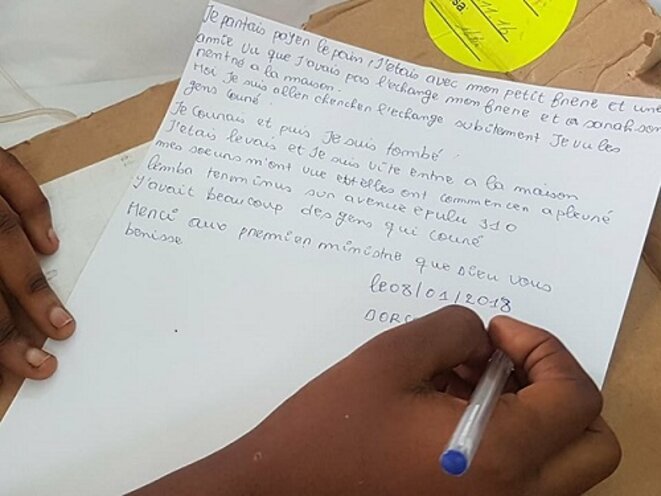 11 16
sa
Je partais payer le pain, J'etais avec mon petit frere et une
amie vu que j'avais pas l'echange mon frere et sarah son
rentré a la maison.
Moi Je suis aller chercher l'echange subitement Je vu les
gens couré
Je courais et puis Je suis tombé.
J'etais levais et Je suis vite entre a la maison
mes soeurs m'ont vue et elles ont commencer a pleuré
lemba terminus sur avenue epulu 310
y'avait beaucoup des gens qui couré
Merci aux premier ministre que Dieu vous
benisse
le 08/01/2018
DORC